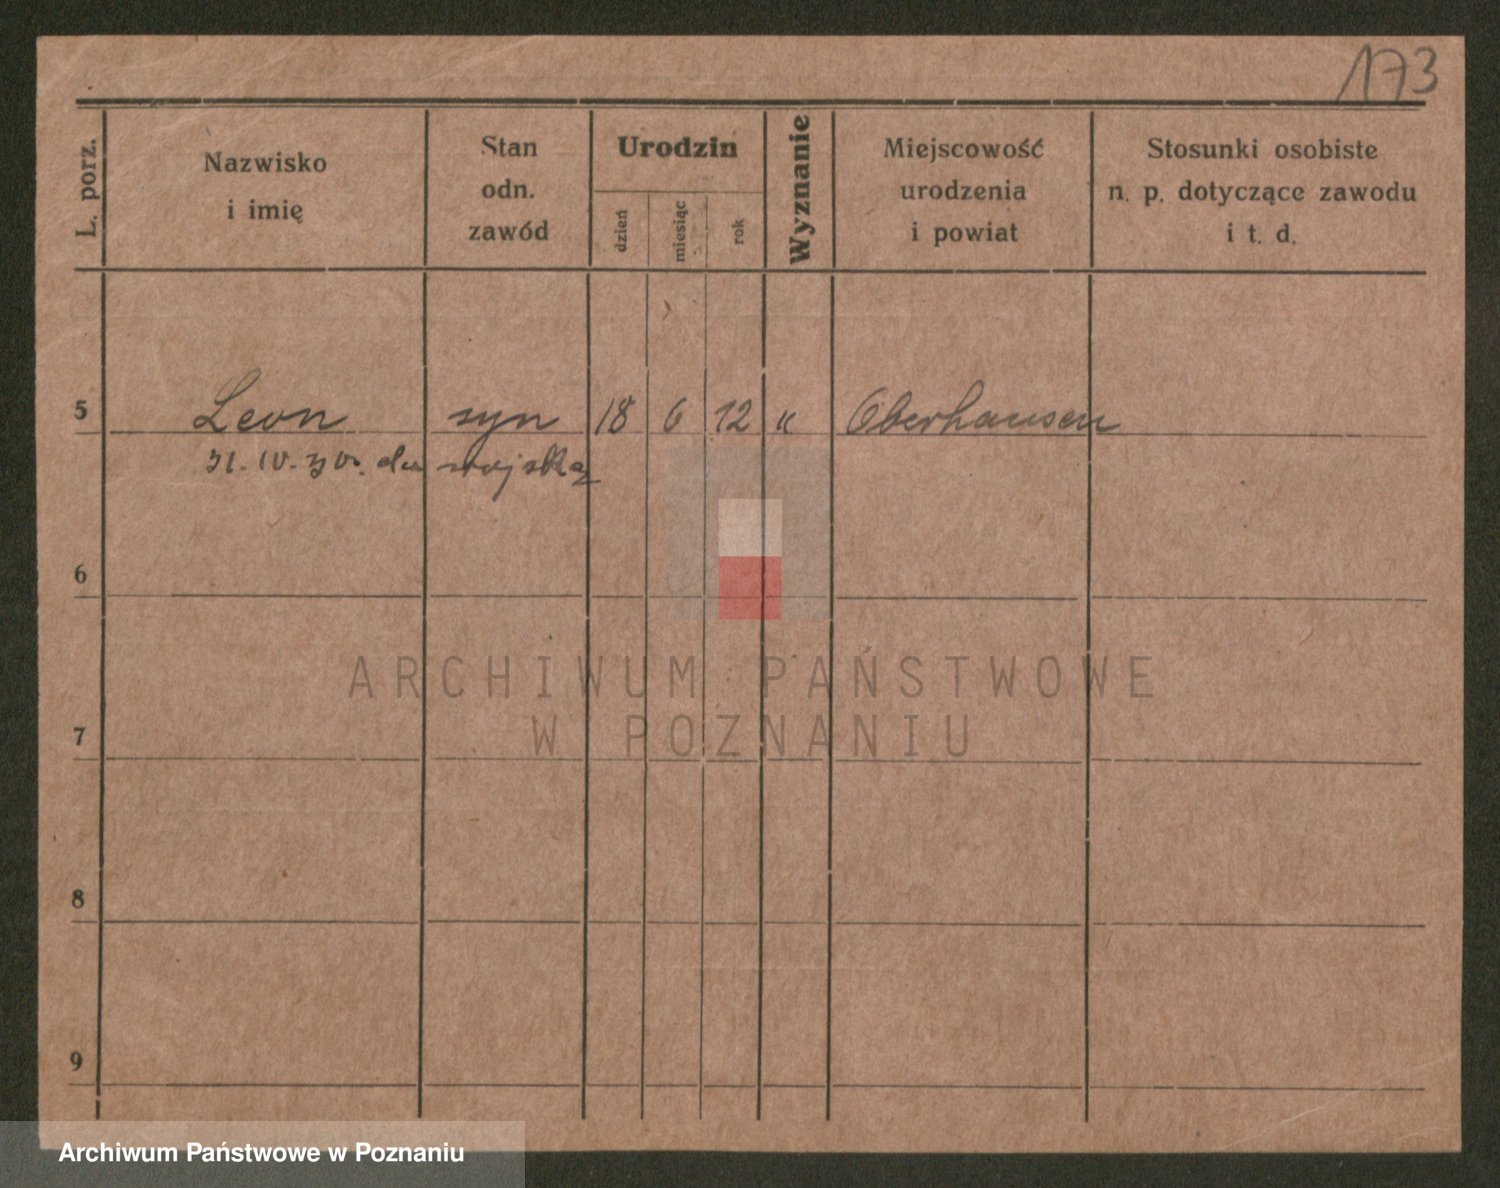 173
L. porz.
Nazwisko
i imię
Stan
odn.
zawód
Urodzin
dzień
miesiąc
rok
Wyznanie
Miejscowość
urodzenia
i powiat
Stosunki osobiste
n. p. dotyczące zawodu
i t. d.
5 Leon syn 18 6 12 " Oberhausen
do wojska
6
7
8
9
ARCHIWUM PAŃSTWOWE
W POZNANIU
Archiwum Państwowe w Poznaniu